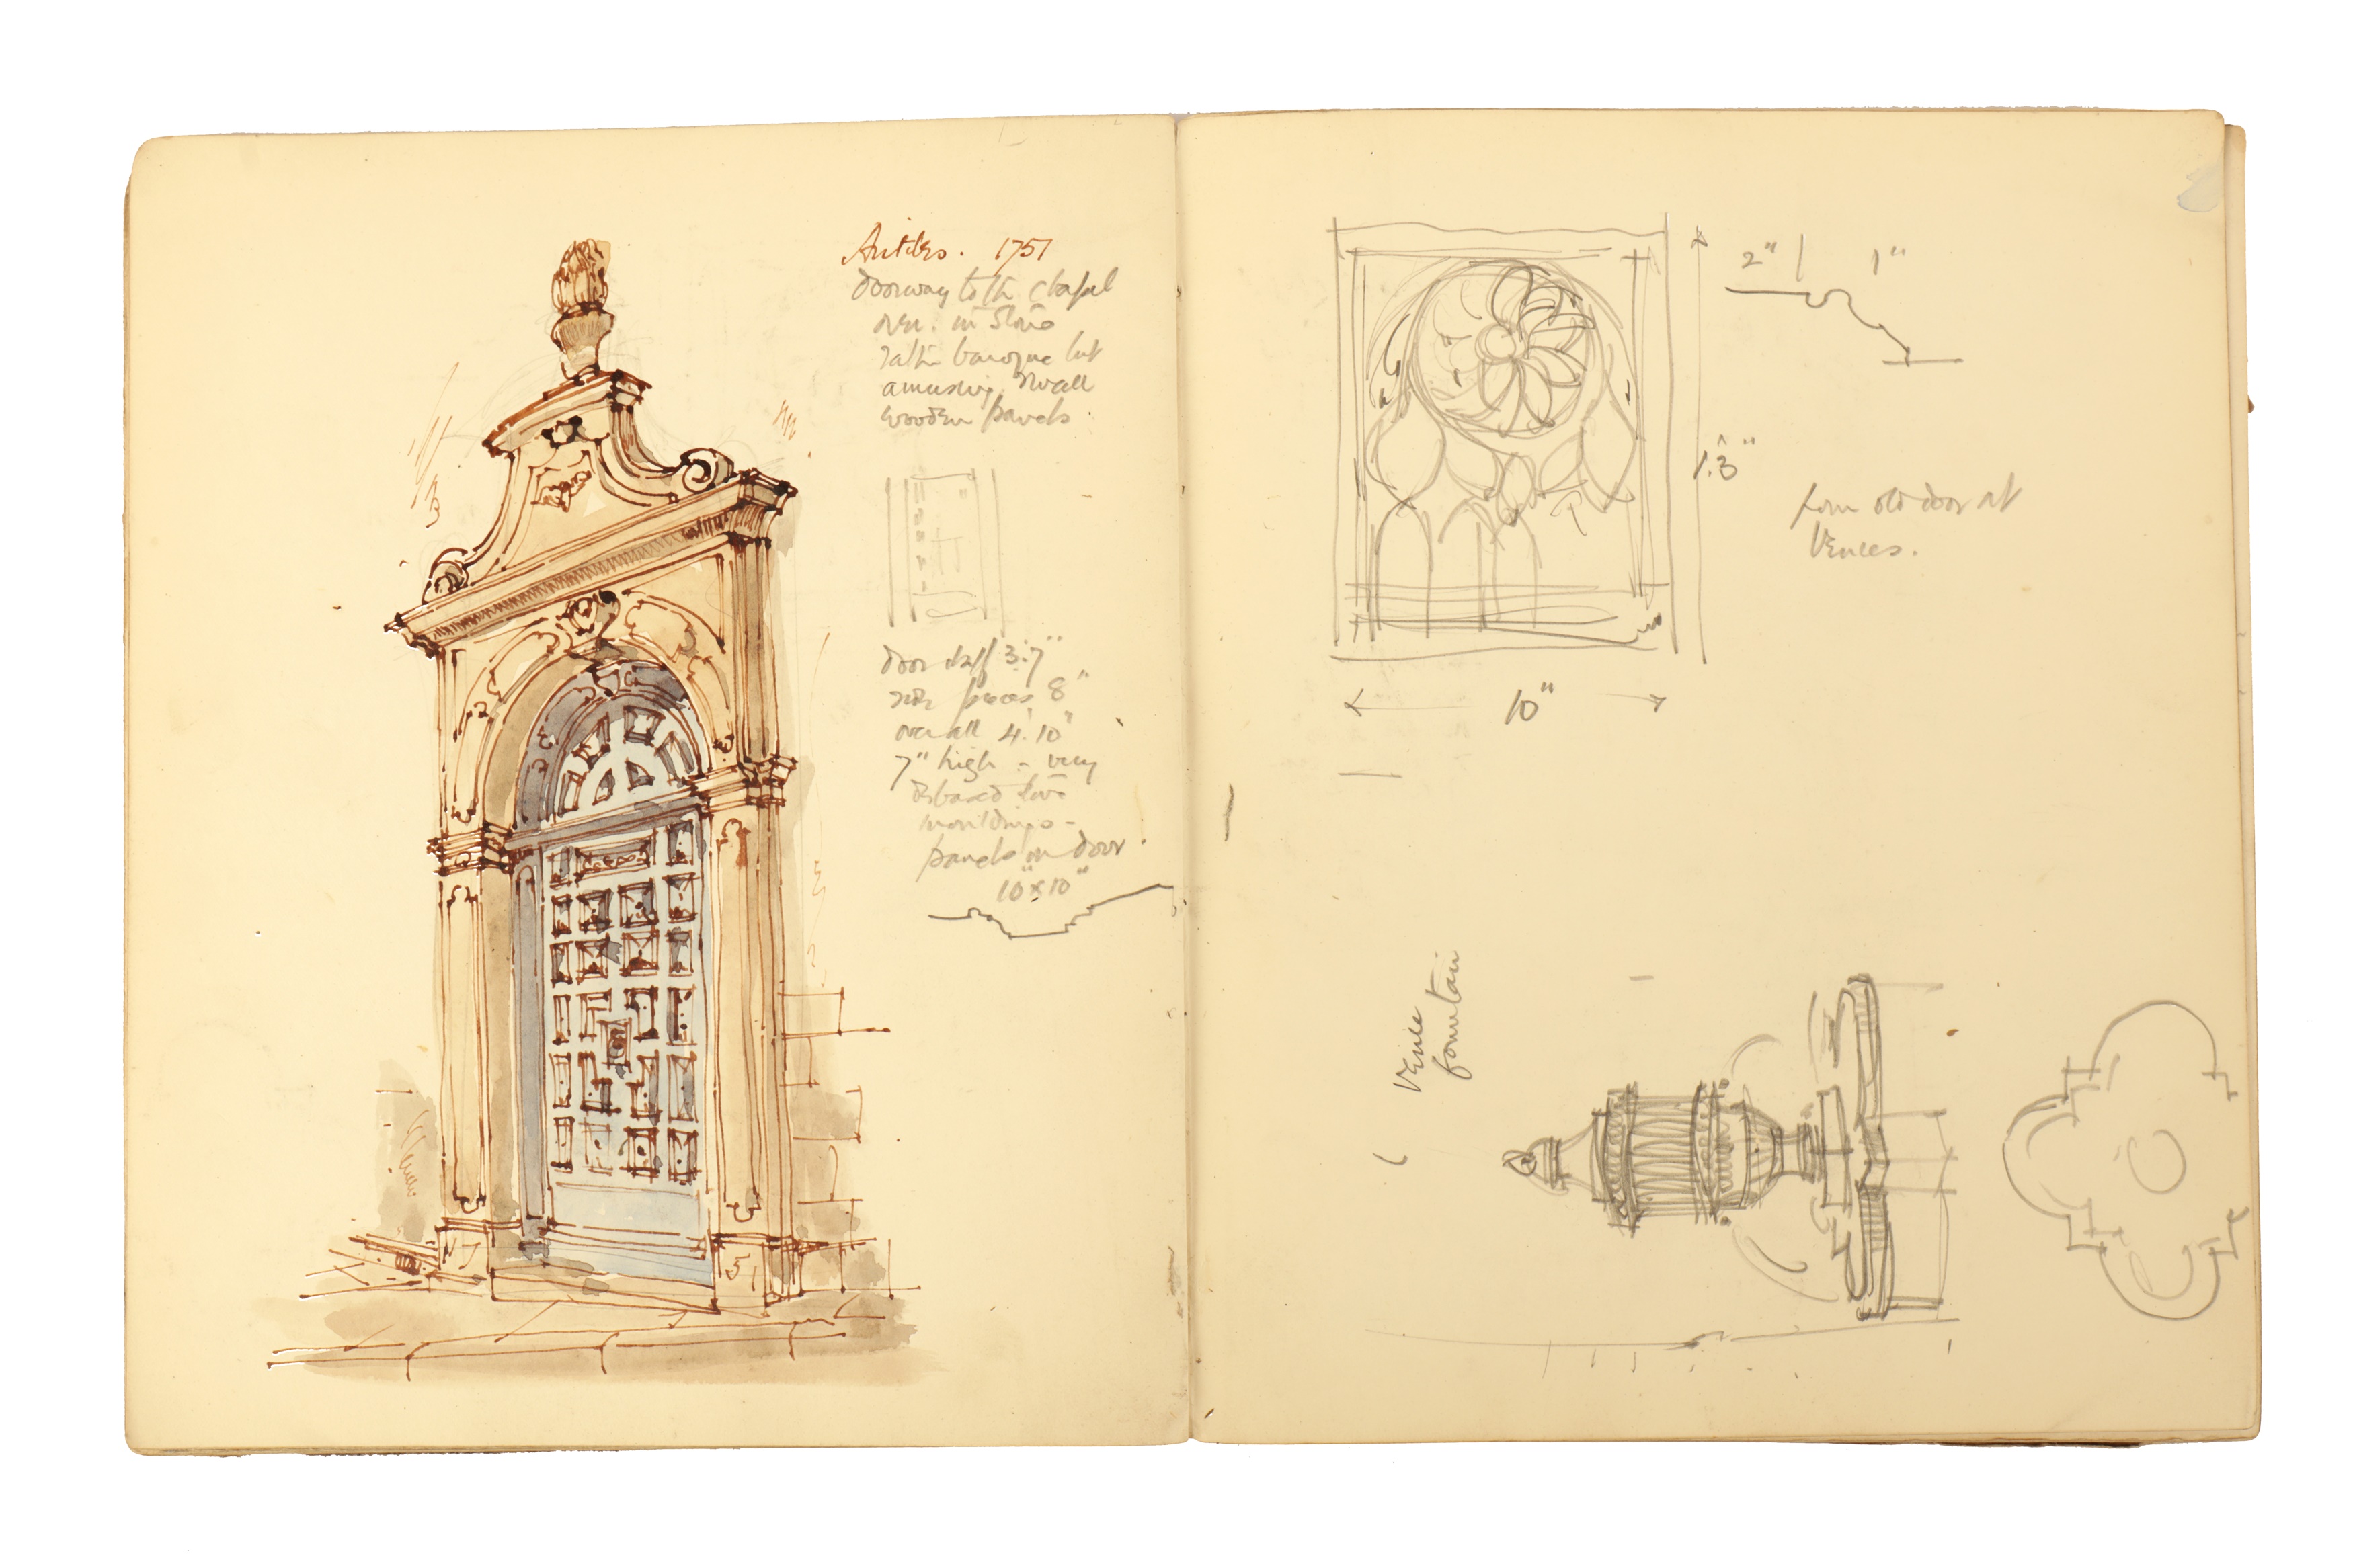 Antibes. 1751
Doorway to the chapel
in stone
rather baroque but
amusing small
wooden panels
door half 3.7"
side pieces 8"
over all 4'.10"
7" high - very
debased
mouldings -
panels on door
10" x 10"
2" 1"
1.3"
from old door at
Vences.
10"
Vence
fountain